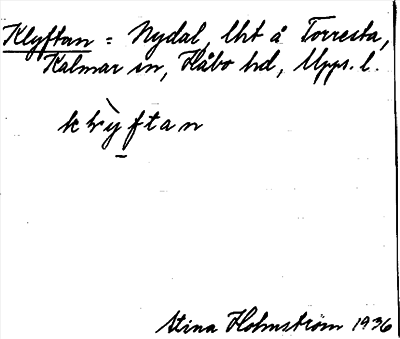 Klyftan = Nydal, lht å Torresta,
Kalmar sn, Håbo hd, Upps. l.
klỳftan
Stina Holmström 1936